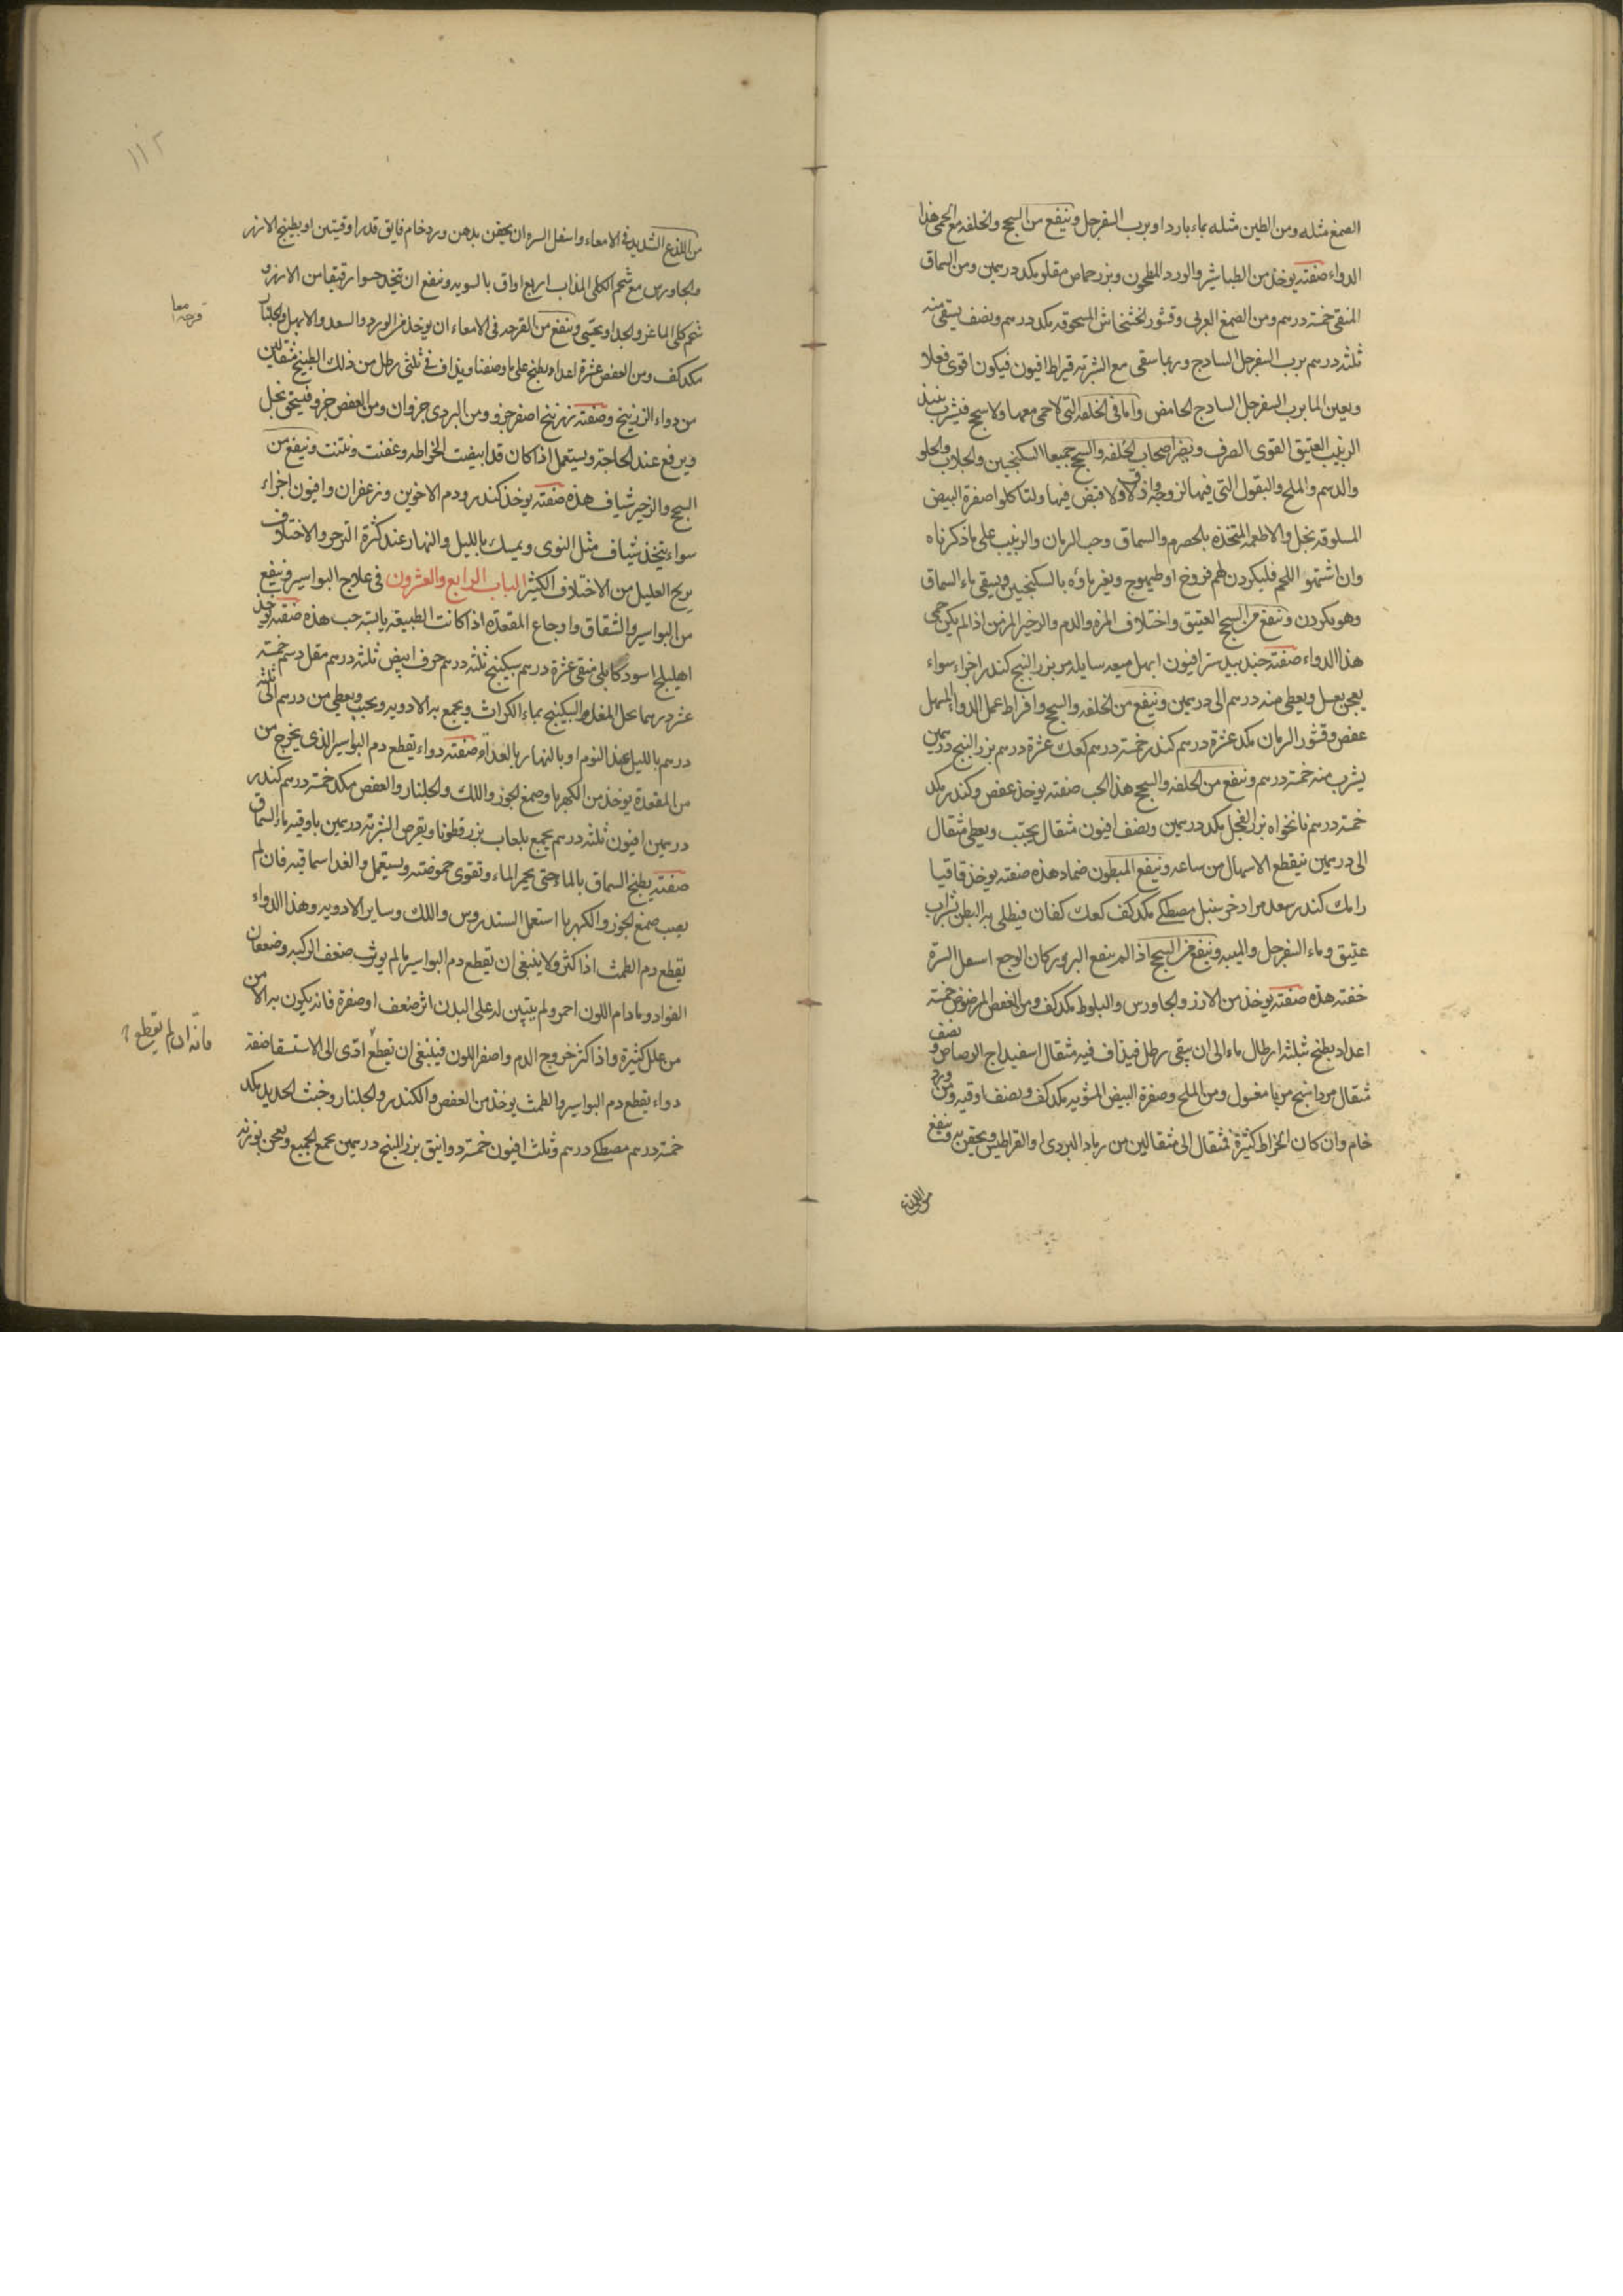 الصمغ مثله ومن الطين مثله بماء بارد او برب السفرجل وينفع من السحج والخلفه مع الحمى هذا
الدواء صفته يوخذ من الطباشير والورد المطحون وبزر حماض مقلو مكد درهمين ومن السماق
المنقى خمسة درهم ومن الصمغ العربى وقشور الخشخاش المسحوقه مكد درهم ونصف يسقى منه
ثلثه درهم برب السفرجل السادج وربما سقى مع الشربة قيراط افيون فيكون اقوى فعلا
ويعين الما برب السفرجل السادج الحامض واما فى الخلفه التى لا حمى معها ولا سحج فيشرب نبيذ
الزبيب العتيق القوى الصرف ويضر اصحاب الخلفه والسحج جميعا السكنجبين والجلاب والحلو
والدسم والملح والبقول التى فيها لزوجه ولا قبض فيها ولتاكلوا صفرة البيض
المسلوقه بخل والاطعمه المتخذه بالحصرم والسماق وحب الرمان والزبيب على ما ذكرناه
وان اشتهو اللحم فليكردن لهم فروخ او طيهوج ويغير ماؤه بالسكنجبين ويسقى ماء السماق
وهو يكردن وينفع من السحج العتيق واختلاف المره والدم والزحير المزمن اذا لم يكن حمى
هذا الدواء صفته جندبيدستر افيون ابهل ميعه سايله مر بزر البنج كندر اجزاء سواء
يعجن بعسل ويعطى منه درهم الى درهمين وينفع من الخلفه والسحج وافراط عمل الدواء المسهل
عفص وقشور الرمان مكد عشرة درهم كندر خمسة درهم كعك عشرة درهم بزر البنج درهمين
يشرب منه خمسة درهم وينفع من الخلفه والسحج هذا الحب صفته يوخذ عفص وكندر مكد
خمسة درهم نانخواه بزر الفجل مكد درهمين ونصف افيون مثقال يحبب ويعطى مثقال
الى درهمين فيقطع الاسهال من ساعه وينفع المبطون ضماد هذه صفته يوخذ قاقيا
رامك كندر سعد مر اذخر سنبل مصطكے مكد كف كعك كفان فيطلى به البطن بشراب
عتيق وماء السفرجل والميبه وينفع من السحج اذا لم ينفع البزور وكان الوجع اسفل السرة
حقنه هذه صفته يوخذ من الارز والجاورس والبلوط مكد كف ومن العفص المرضوض خمسة
اعداد يطبخ بثلثة ارطال ماء الى ان يبقى رطل فيذاف فيه مثقال اسفيداج الرصاص ونصف
مثقال مرداسنج مربا مغسول ومن الملح وصفرة البيض المشويه مكد كف ونصف اوقيه دهن ورد
خام وان كان الخراط كثيرة فمثقال الى مثقالين من رماد البردى او القراطيس ويحقن به وينفع
من اللذع
من اللذع الشديد فى الامعاء واسفل السره ان يحقن بدهن ورد خام فايق قدر اوقيتين او بطبيخ الارز
والجاورس مع شحم الكلى المذاب اربع اواق بالسويه وينفع ان يتخذ حسوا رقيقا من الارز و
شحم كلى الماعز والجدا ويحتسى وينفع من القرحه فى الامعاء ان يوخذ من الورد والسعد والابهل والجلنار
مكد كف ومن العفص عشرة اعداد يطبخ على ما وصفنا ويذاف فى ثلثى رطل من ذلك الطبيخ مثقالين
من دواء الزرنيخ وصفته زرنيخ اصفر جزو ومن البردى جزوان ومن العفص جزو فيسحق بخل
ويرفع عند الحاجه ويستعمل اذا كان قد ابيضت الخراطه وعفنت ونتنت وينفع من
السحج والزحير شياف هذه صفته يوخذ كندر ودم الاخوين وزعفران وافيون اجزاء
سواء يتخذ شياف مثل النوى ويمسك بالليل والنهار عند كثرة التزحر والاختلاف
يريح العليل من الاختلاف الكثير الباب الرابع والعشرون فى علاج البواسير وينفع
من البواسير والشقاق واوجاع المقعده اذا كانت الطبيعه يابسه حب هذه صفته يوخذ
اهليلج اسود كابلى منقى عشرة درهم سكبينج ثلثه درهم حرف ابيض ثلثه درهم مقل خمسة
عشر درهما يحل المقل والسكبينج بماء الكراث ويجمع به الادويه ويحبب ويعطى من درهم الى ثلثه
درهم بالليل عند النوم او بالنهار بالغداة وصفته دواء يقطع دم البواسير الذى يخرج من
من المقعدة يوخذ من الكهربا وصمغ الجوز واللك والجلنار والعفص مكد خمسة درهم كندر
درهمين افيون ثلثه درهم يجمع بلعاب بزر قطونا ويقرص الشربة درهمين باوقيه ماء السماق
صفته يطبخ السماق بالماء حتى يحمر الماء وتقوى حموضته ويستعمل والغدا سماقيه فان لم
يصب صمغ الجوز والكهربا استعمل السندروس واللك وساير الادويه وهذا الدواء
يقطع دم الطمث اذا كثر ولا ينبغى ان يقطع دم البواسير ما لم يورث ضعف الركبه وضعفان
الفواد وما دام اللون احمر ولم يتبين له على البدن اثر ضعف او صفرة فانه يكون به الامن
من علل كثيرة واذا كثر خروج الدم واصفر اللون فينبغى ان يقطع ادى الى الاستسقا صفة
دواء يقطع دم البواسير والطمث يوخذ من العفص والكندر والجلنار وخبث الحديد مكد
خمسة درهم مصطكے درهم وثلث افيون خمسة دوانيق بزر البنج درهمين يجمع الجميع ويعجن
قرحه امعا
فانه ان لم يقطع
١١٢